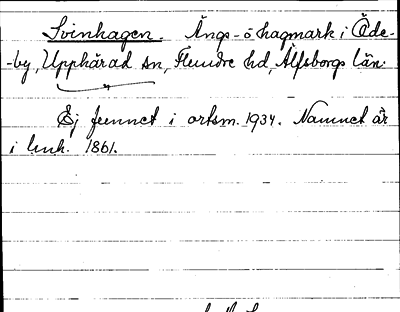 Svinhagen. Ängs- o hagmark i Öde-
-by, Upphärad sn, Flundre hd, Älfsborgs län.
Ej funnet i ortsm. 1934. Namnet är
i lmh. 1861.